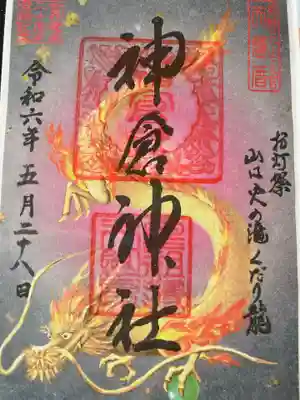 お灯祭
山は火の滝くだり龍
神倉神社
令和六年 五月二十八日